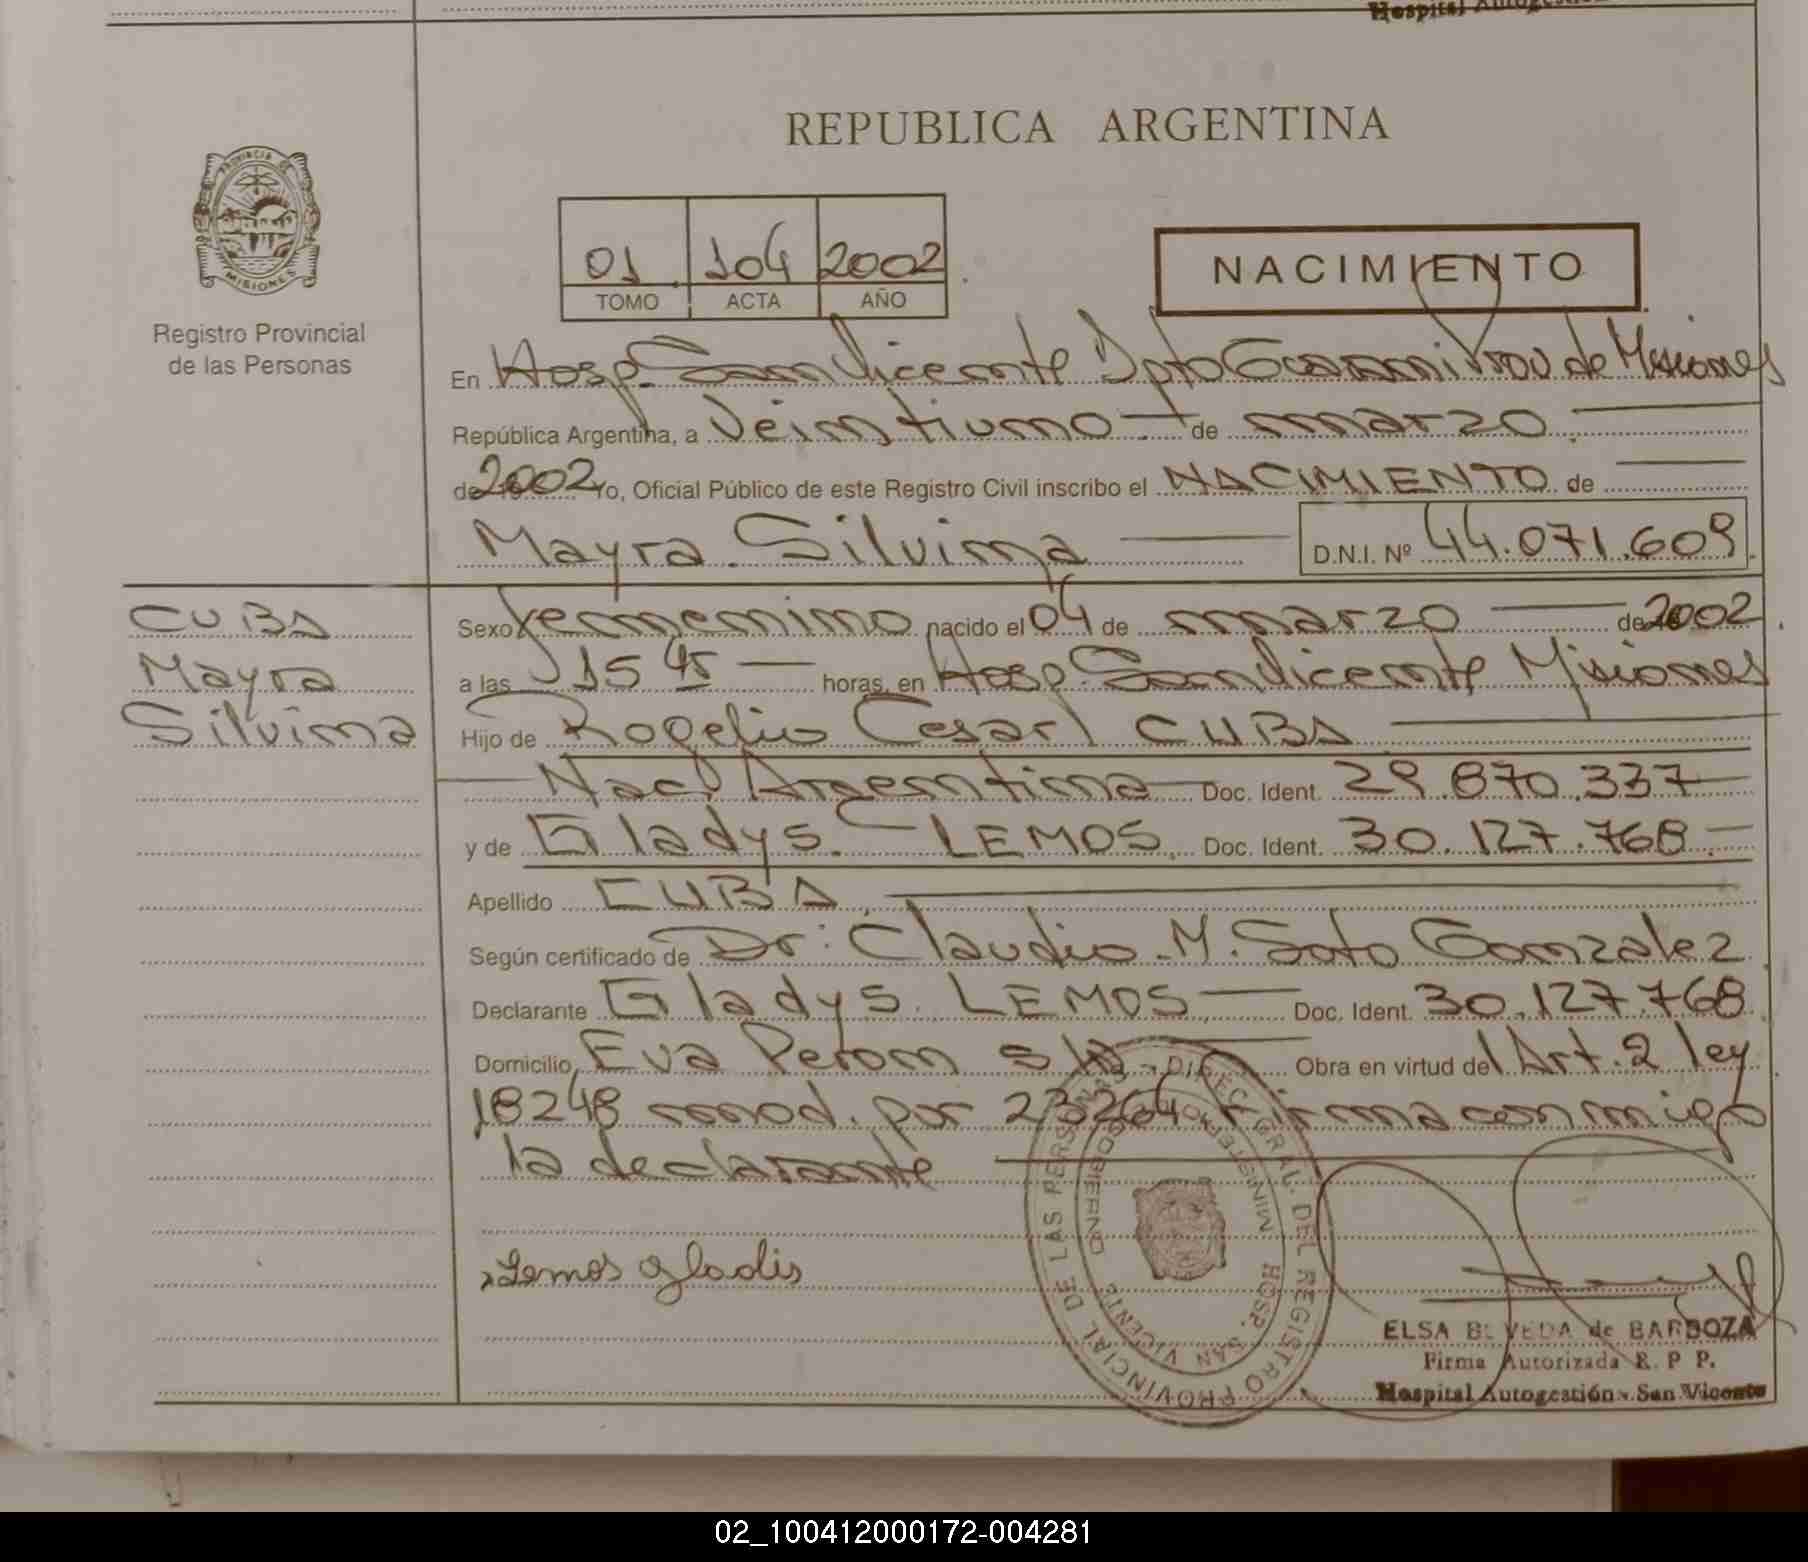 Hospital Autogestión
REPUBLICA ARGENTINA
PROVINCIA DE
MISIONES
Registro Provincial
de las Personas
01 104 2002
TOMO ACTA AÑO
NACIMIENTO
En Hosp. San Vicente Dpto Guarani Prov de Misiones
República Argentina, a Veintiuno de marzo
de 2002 Yo, Oficial Público de este Registro Civil inscribo el NACIMIENTO de
Mayra Silvina D.N.I. Nº 44.071.609
CUBA
Mayra
Silvina
Sexo femenino nacido el 04 de marzo de 2002
a las 15 45 horas, en Hosp. San Vicente Misiones
Hijo de Rogelio Cesar CUBA
Nac. Argentina Doc. Ident. 29.870.337
y de Gladys LEMOS Doc. Ident. 30.127.768
Apellido CUBA
Según certificado de Dr. Claudio M. Soto Gonzalez
Declarante Gladys LEMOS Doc. Ident. 30.127.768
Domicilio Eva Peron s/n Obra en virtud del Art. 2 ley
18248 mod. por 23264 firma conmigo
la declarante
Lemos gladis
DIREC. GRAL. DEL REGISTRO PROVINCIAL DE LAS PERSONAS
MINISTERIO GOBIERNO
HOSP. SAN VICENTE
ELSA de BARBOZA
Firma Autorizada R. P P.
Hospital Autogestión - San Vicente
02_100412000172-004281